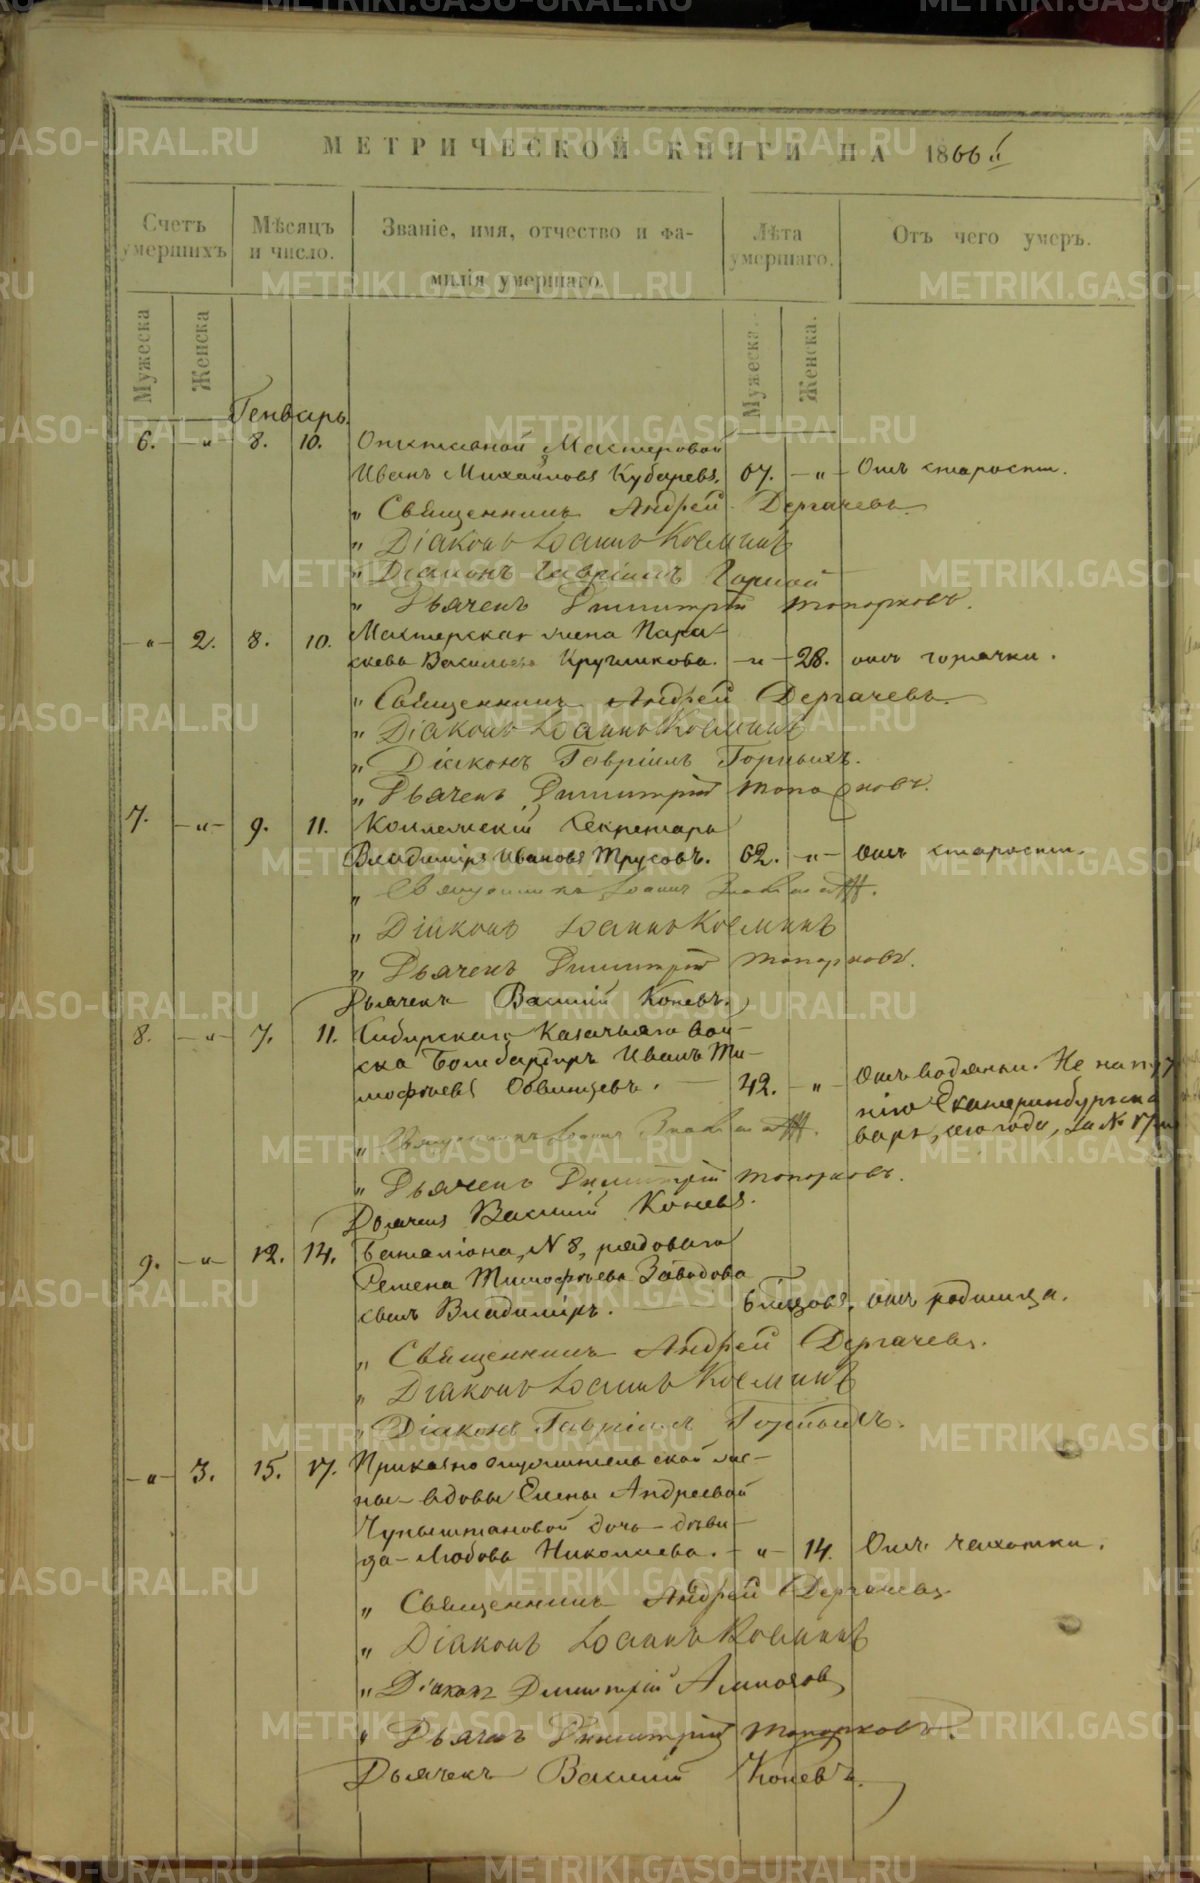 МЕТРИЧЕСКОЙ КНИГИ НА 1866 й
Счетъ умершихъ
Мѣсяцъ и число.
Званіе, имя, отчество и фамилія умершаго.
Лѣта умершаго.
Отъ чего умеръ.
Мужеска
Женска
Мужеска.
Женска.
Генварь.
6. — „ — 8. 10. Отставной Мастеровой
Иванъ Михайловъ Кубаревъ. 67. — „ — Отъ старости.
„ Священникъ Андрей Дергачевъ
„ Діаконъ Іоаннъ Косминъ
„ Діаконъ Гавріилъ Горной
„ Дьячекъ Димитрій Топорковъ.
— „ — 2. 8. 10. Мастерская жена Пара-
скева Васильева Кругликова. — „ — 28. отъ горячки.
„ Священникъ Андрей Дергачевъ
„ Діаконъ Іоаннъ Косминъ
„ Діаконъ Гавріилъ Горныхъ.
„ Дьячекъ Димитрій Топорковъ.
7. — „ — 9. 11. Коллежскій Секретарь
Владиміръ Ивановъ Трусовъ. 62. — „ — Отъ старости.
„ Священникъ Іоаннъ
„ Діаконъ Іоаннъ Косминъ
„ Дьячекъ Димитрій Топорковъ.
Дьячекъ Василій Коневъ.
8. — „ — 7. 11. Сибирскаго Казачьяго Вой-
ска Бомбардиръ Иванъ Ти-
мофѣевъ Обвинцевъ. — 42. — „ — Отъ водянки. Не на
нію Екатеринбургска
варя, сего года, за № 17
„ Священникъ Іоаннъ
„ Дьячекъ Димитрій Топорковъ.
Дьячекъ Василій Коневъ.
9. — „ — 12. 14. Баталіона, № 8, рядоваго
Семена Тимофѣева Заводова
сынъ Владиміръ. — отъ родимца.
„ Священникъ Андрей Дергачевъ.
„ Діаконъ Іоаннъ Косминъ
„ Діаконъ Гавріилъ Горныхъ.
— „ — 3. 15. 17. Приказнослужительской же-
ны — вдовы Елены Андреевой
дочь — дѣви-
ца — Любовь Николаева. — „ — 14. Отъ чахотки.
„ Священникъ Андрей Дергачевъ
„ Діаконъ Іоаннъ Косминъ
„ Діаконъ Димитрій
„ Дьячекъ Димитрій Топорковъ.
Дьячекъ Василій Коневъ.
METRIKI.GASO-URAL.RU